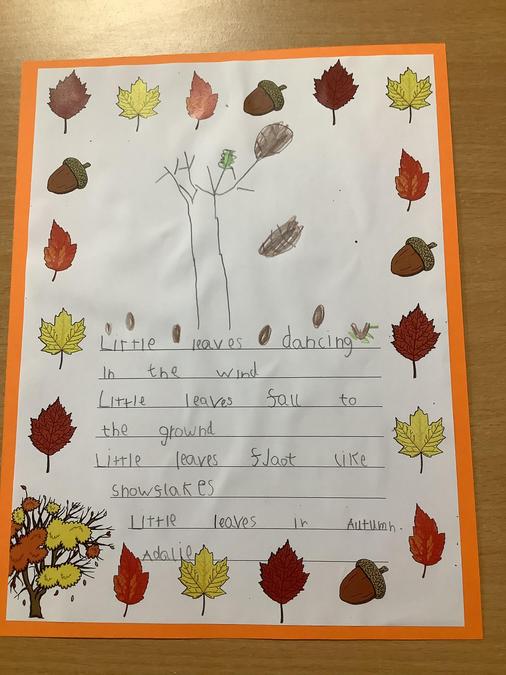 Little leaves dancing
in the wind
Little leaves fall to
the grownd
Little leaves flaot like
snowflakes
Little leaves in Autumn.
Adalie